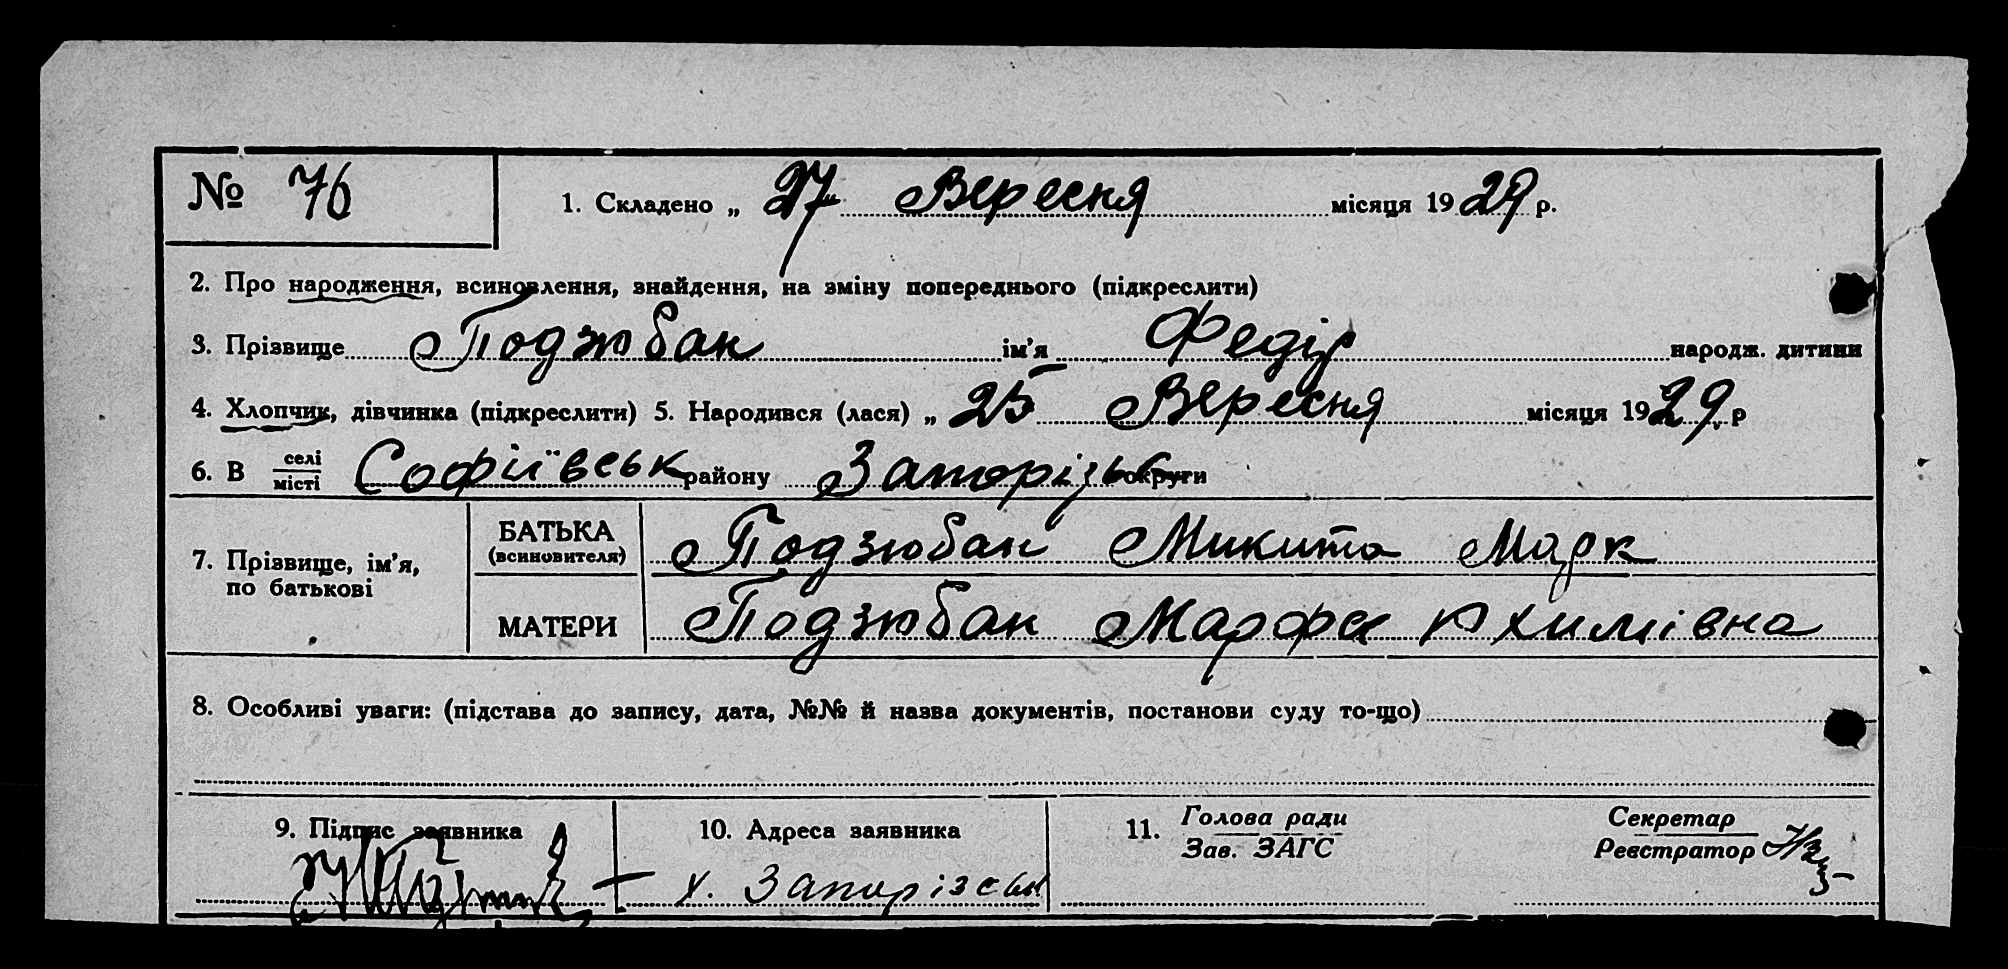 № 76
1. Складено „ 27 Вересня місяця 1929 р.
2. Про народження, всиновлення, знайдення, на зміну попереднього (підкреслити)
3. Прізвище Подзюбан ім'я Федір народж. дитини
4. Хлопчик, дівчинка (підкреслити) 5. Народився (лася) „ 25 Вересня місяця 1929 р
6. В селі місті Софіївськ району Запорізьк округи
7. Прізвище, ім'я, по батькові
БАТЬКА (всиновителя) Подзюбан Микита Марк
МАТЕРИ Подзюбан Марфа Юхимівна
8. Особливі уваги: (підстава до запису, дата, №№ й назва документів, постанови суду то-що)
9. Підпис заявника
10. Адреса заявника
х.
11. Голова ради
Зав. ЗАГС
Секретар
Реєстратор